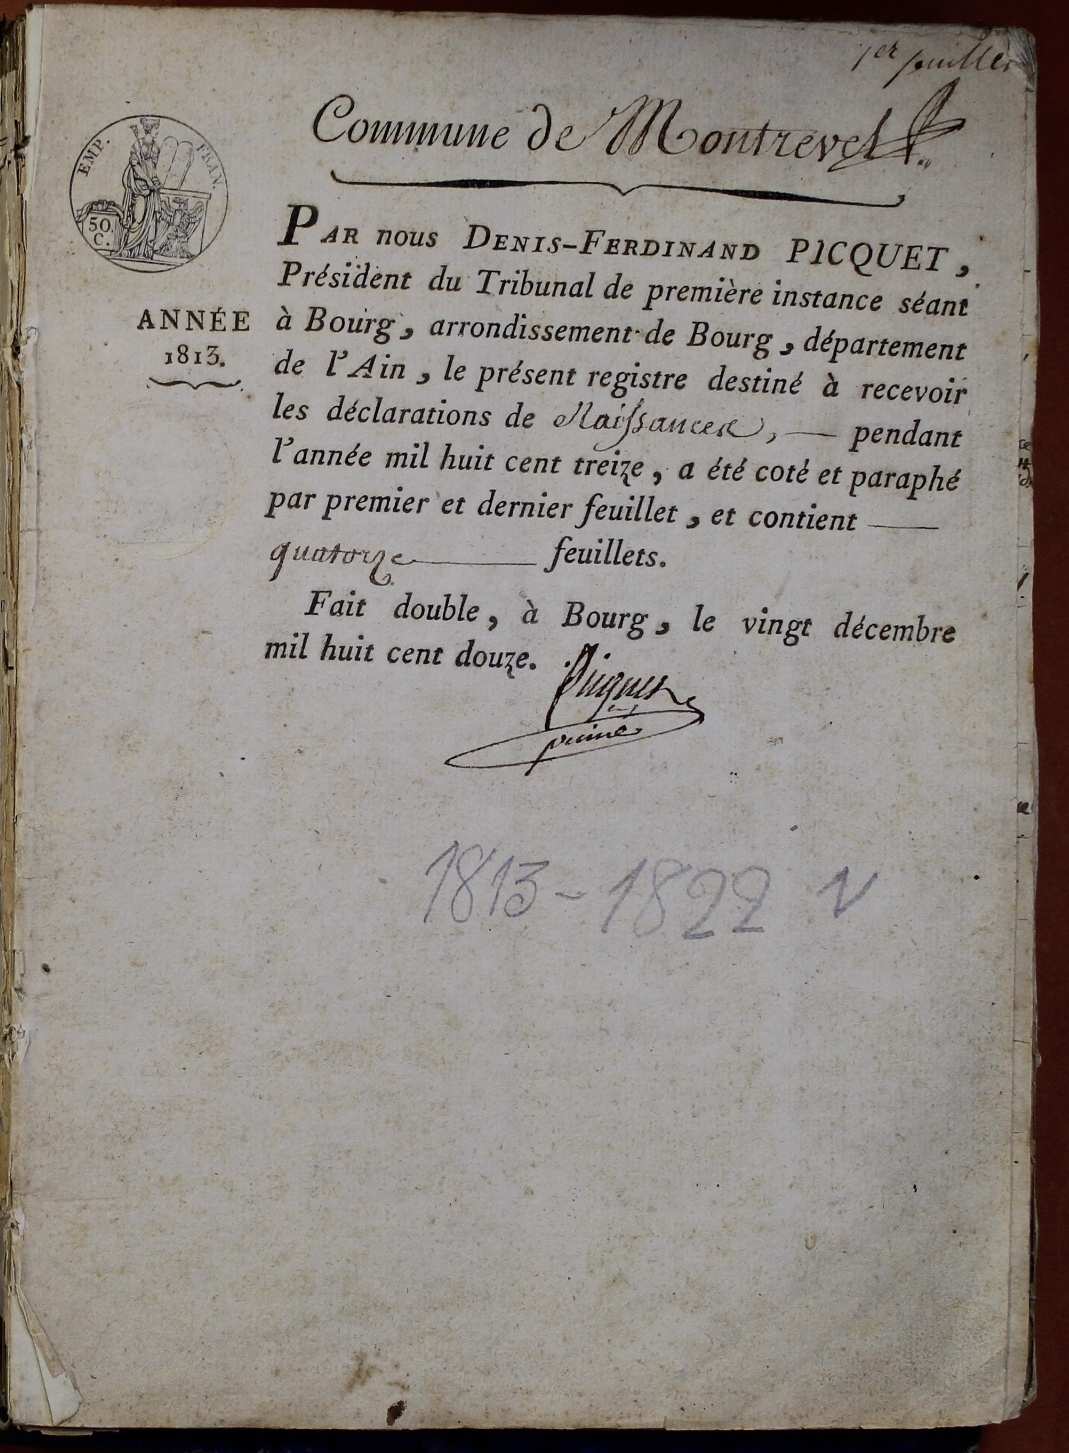 1er feuillet
Commune de Montrevel
EMP. FRAN.
50
C.
PAR nous DENIS-FERDINAND PICQUET,
Président du Tribunal de première instance séant
ANNÉE
1813.
à Bourg, arrondissement de Bourg, département
de l'Ain, le présent registre destiné à recevoir
les déclarations de Naissances, — pendant
l'année mil huit cent treize, a été coté et paraphé
par premier et dernier feuillet, et contient —
quatorze — feuillets.
Fait double, à Bourg, le vingt décembre
mil huit cent douze.
Picquet
1813-1822 N